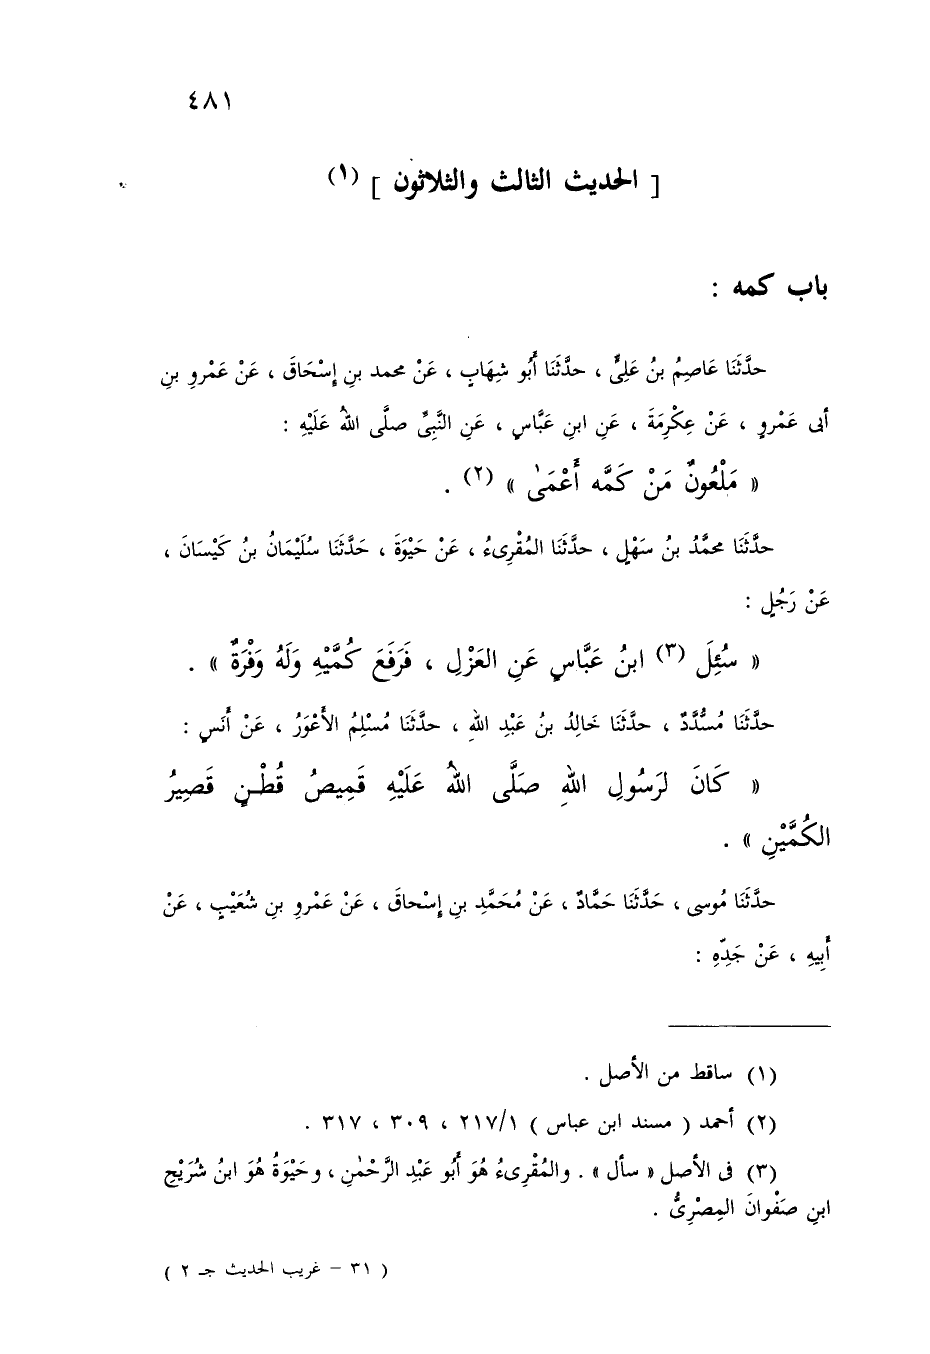 ٤٨١
[ الحديث الثالث والثلاثون ] (١)
باب كمه :
حدَّثَنَا عَاصِمُ بنُ عَلِىٍّ ، حدَّثَنَا أَبُو شِهَابٍ ، عَنْ محمد بنِ إِسْحَاقَ ، عَنْ عَمْرِو بنِ
أبى عَمْرٍو ، عَنْ عِكْرِمَةَ ، عَنِ ابنِ عَبَّاسٍ ، عَنِ النَّبِىِّ صلَّى اللهُ عَلَيْهِ :
« مَلْعُونٌ مَنْ كَمَّه أَعْمَىٰ » (٢) .
حدَّثَنَا محمَّدُ بنُ سَهْلٍ ، حدَّثَنَا المُقْرِىءُ ، عَنْ حَيْوَةَ ، حَدَّثَنَا سُلَيْمَانُ بنُ كَيْسَانَ ،
عَنْ رَجُلٍ :
« سُئِلَ (٣) ابنُ عَبَّاسٍ عَنِ العَزْلِ ، فَرَفَعَ كُمَّيْهِ وَلَهُ وَفْرَةٌ » .
حدَّثَنَا مُسَّدَّدٌ ، حدَّثَنَا خَالِدُ بنُ عَبْدِ اللهِ ، حدَّثَنَا مُسْلِمُ الأَعْوَرُ ، عَنْ أَنَسٍ :
« كَانَ لرَسُولِ اللهِ صَلَّى اللهُ عَلَيْهِ قَمِيصُ قُطْنٍ قَصِيرُ
الكُمَّيْنِ » .
حدَّثَنَا مُوسى ، حَدَّثَنَا حَمَّادٌ ، عَنْ مُحَمَّدِ بنِ إِسْحاقَ ، عَنْ عَمْرِو بنِ شُعَيْبٍ ، عَنْ
أَبِيهِ ، عَنْ جَدِّهِ :
(١) ساقط من الأصل .
(٢) أحمد ( مسند ابن عباس ) ٢١٧/١ ، ٣٠٩ ، ٣١٧ .
(٣) فى الأصل « سأل » . والمُقْرِىءُ هُوَ أَبُو عَبْدِ الرَّحْمٰنِ ، وحَيْوَةُ هُوَ ابنُ شُرَيْحِ
ابنِ صَفْوانَ المِصْرِىُّ .
( ٣١ - غريب الحديث جـ ٢ )